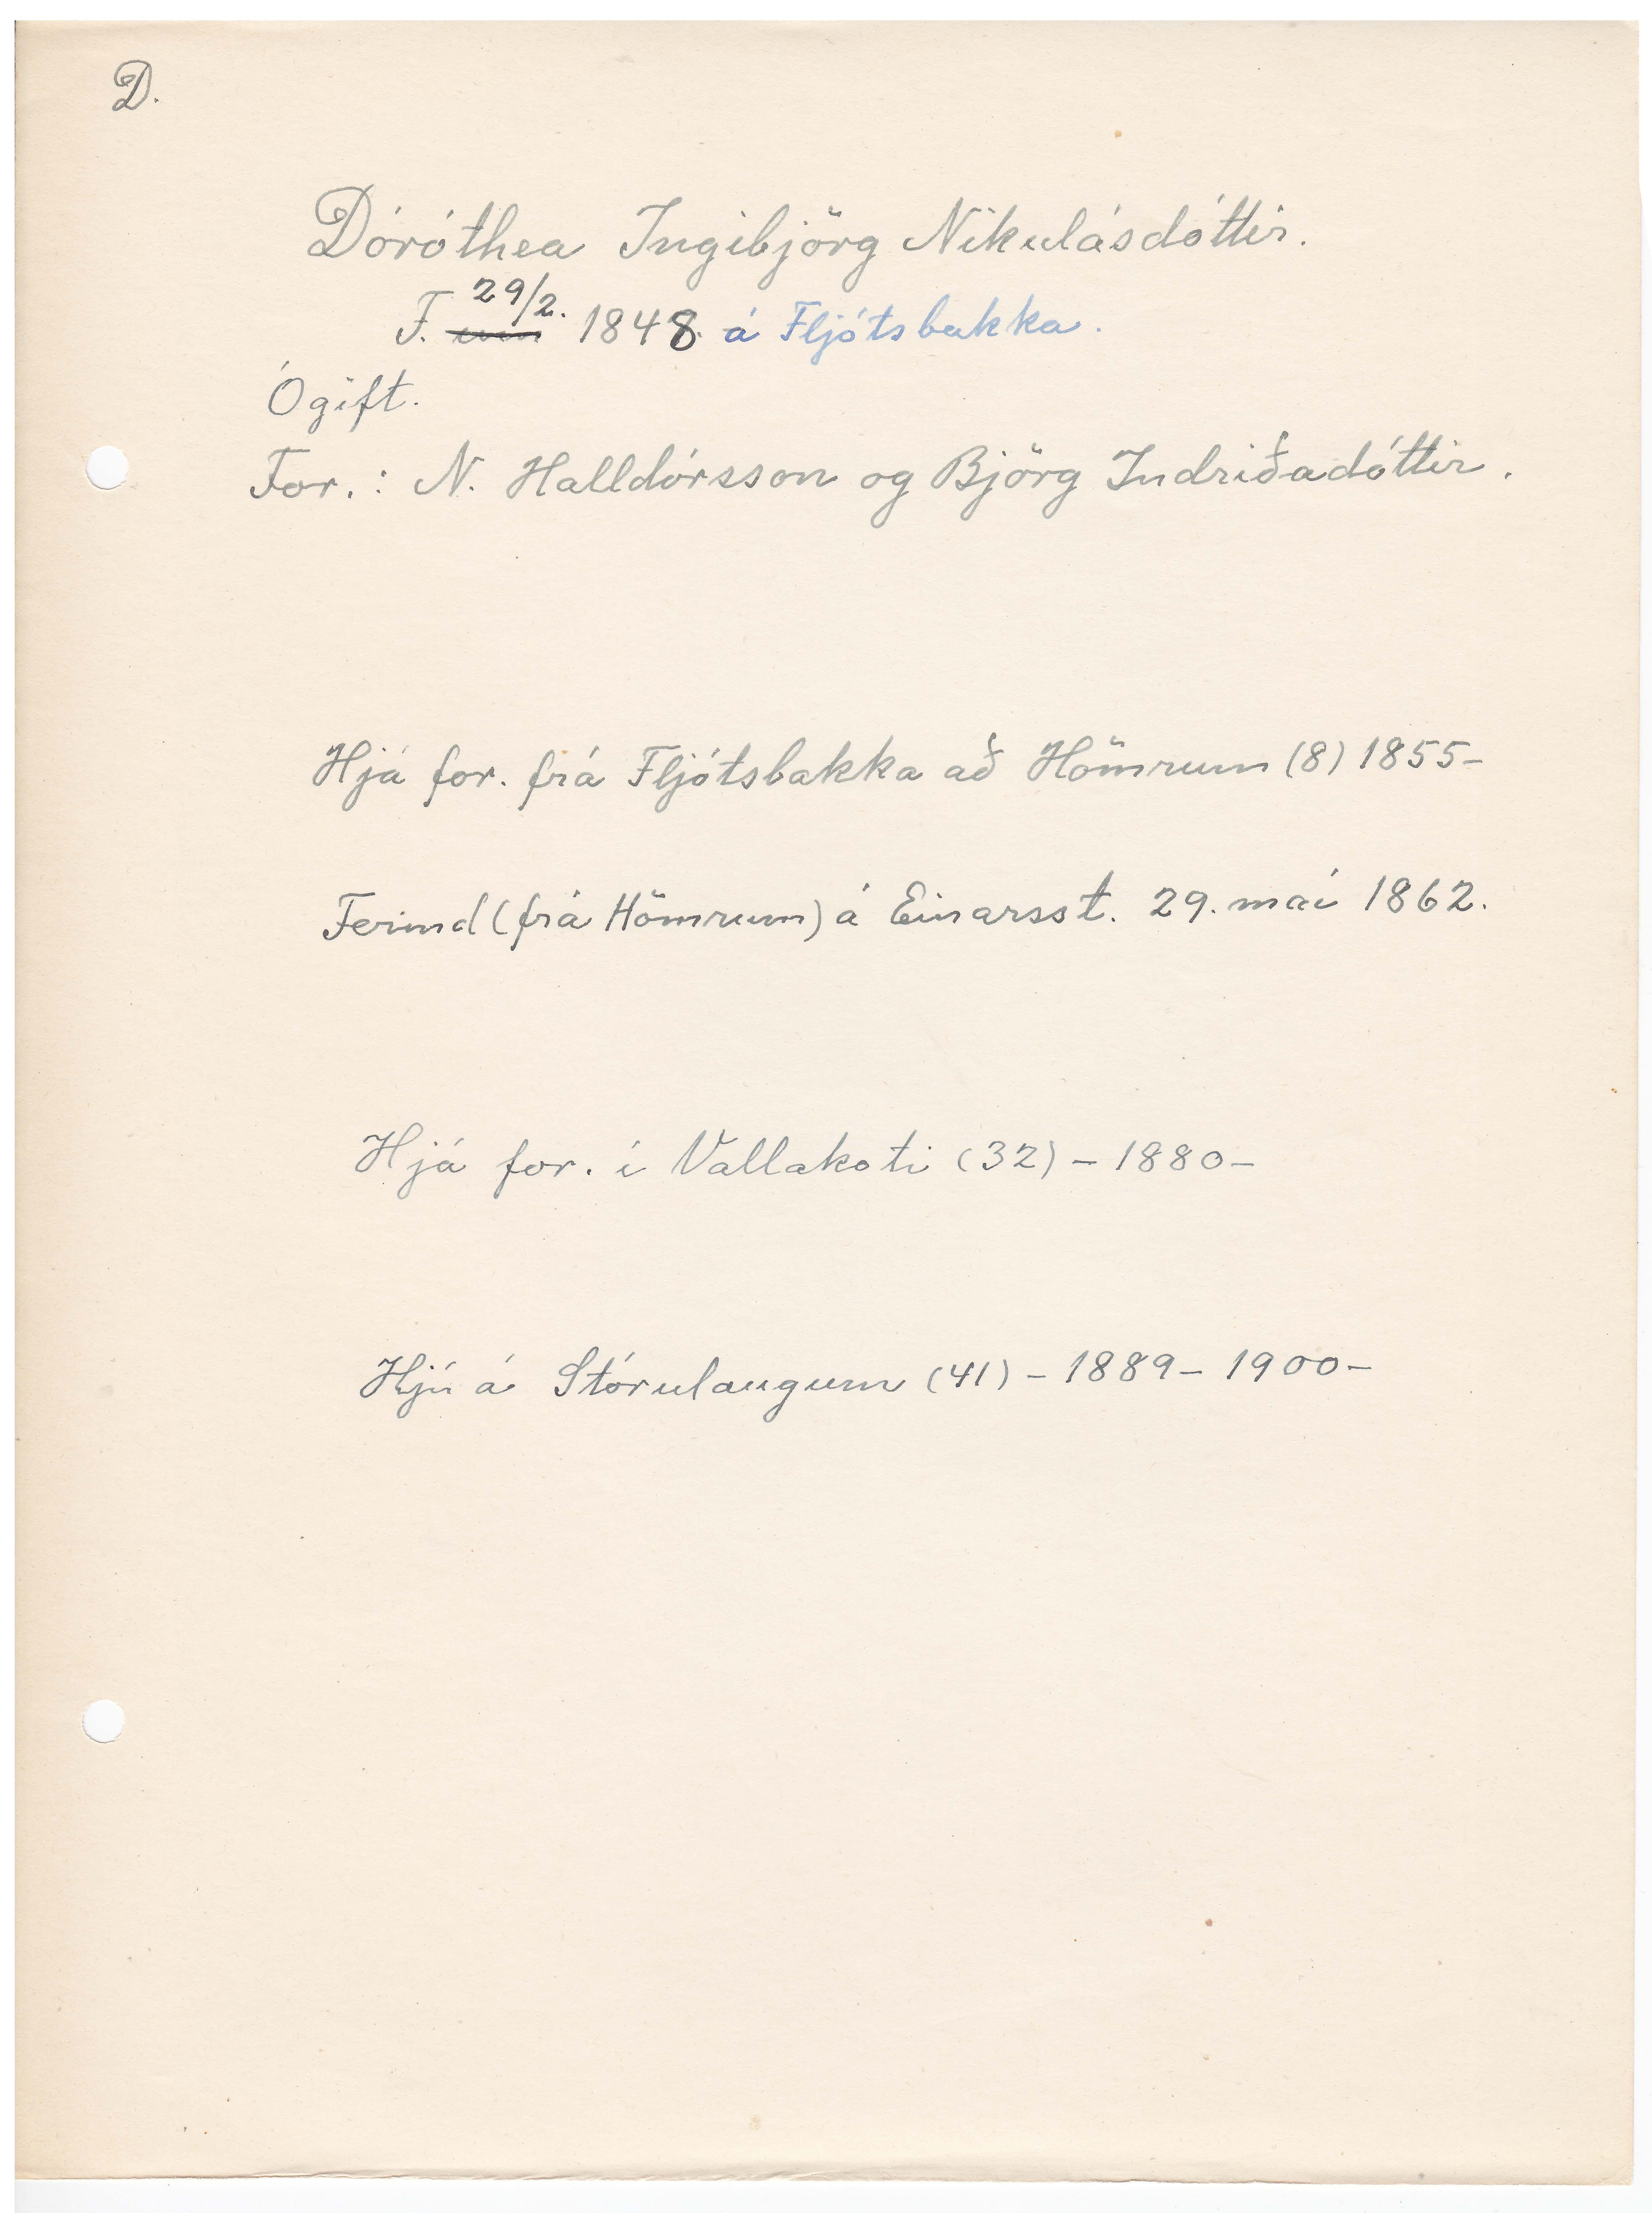 D.
Dóróthea Ingibjörg Nikulásdóttir.
F. um 29/2. 1848 á Fljótsbakka.
Ógift.
For.: N. Halldórsson og Björg Indriðadóttir.
Hjá for. frá Fljótsbakka að Hömrum (8) 1855-
Fermd (frá Hömrum) á Einarsst. 29. maí 1862.
Hjá for. í Vallakoti (32) - 1880-
Hjú á Stórulaugum (41) - 1889 - 1900-